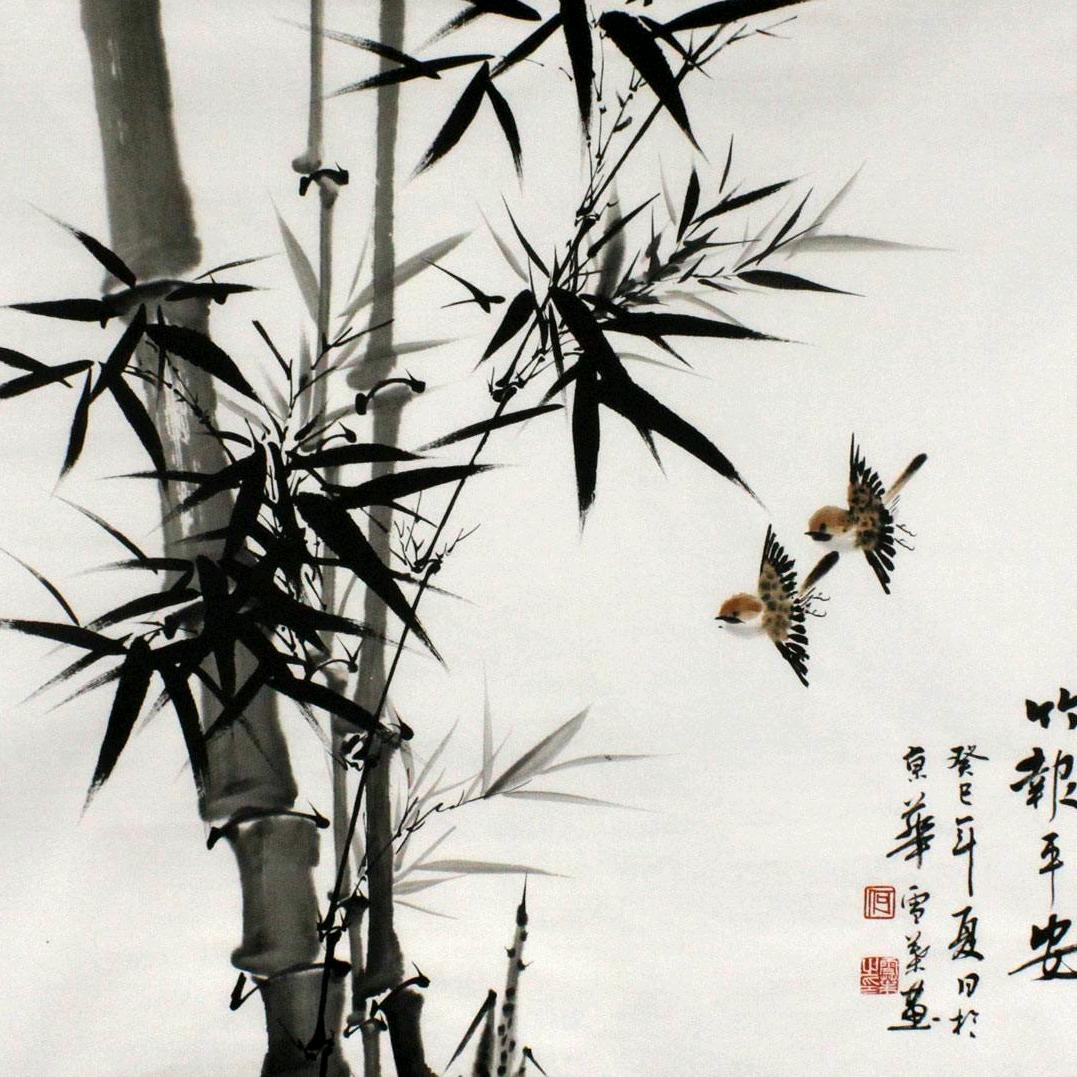 竹報平安
癸巳年夏日於
京華雪葉画
何